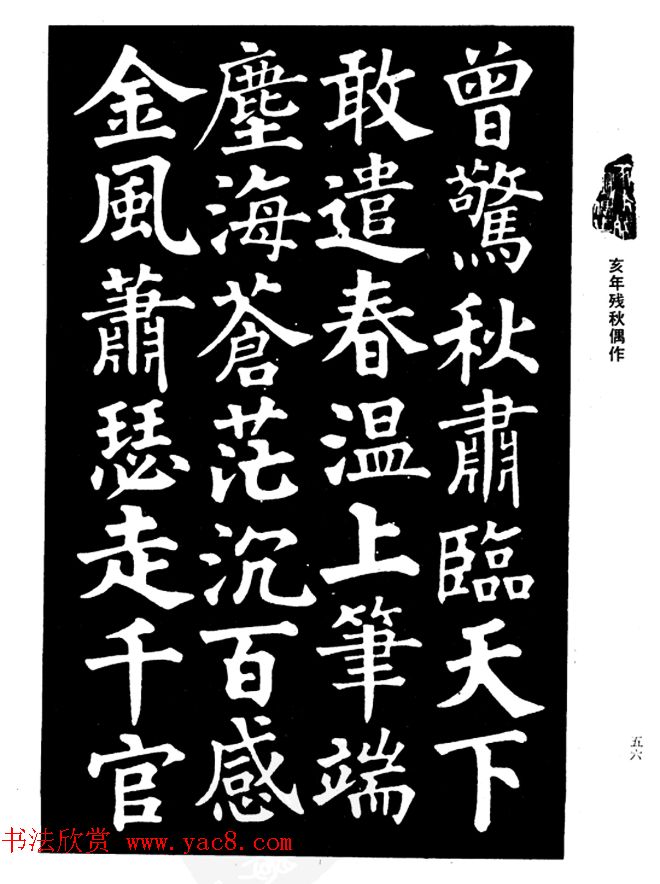 曾驚秋肅臨天下
敢遣春温上筆端
塵海蒼茫沉百感
金風蕭瑟走千官
亥年残秋偶作
五六
书法欣赏 www.yac8.com